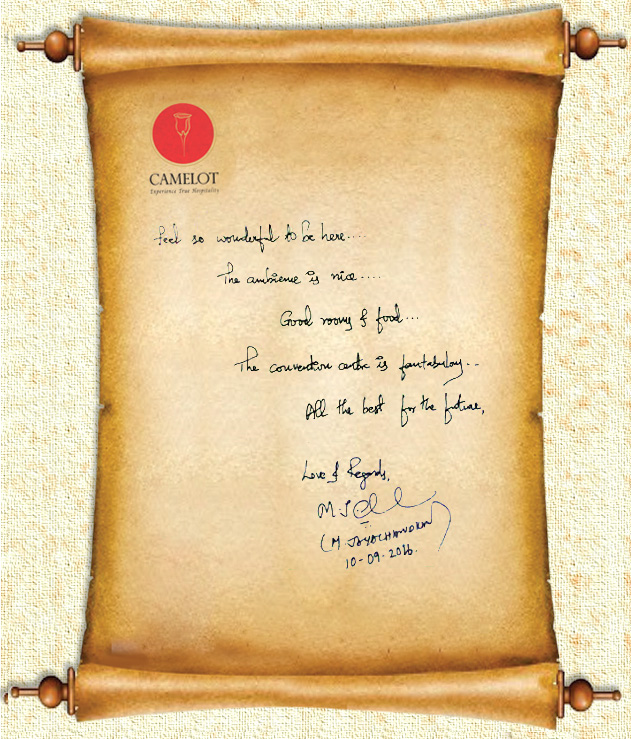 CAMELOT
Experience True Hospitality
Feel so wonderful to be here....
The ambience is nice....
Good rooms & food...
The convention centre is fantabulous...
All the best for the future,
Love & Regards,
(M JAYACHANDRAN)
10-09-2016.